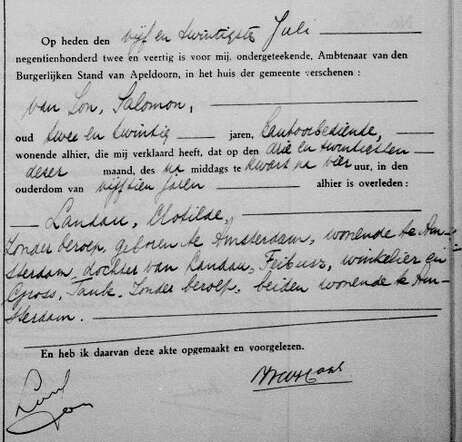 Op heden den vijf en twintigste Juli
negentienhonderd twee en veertig is voor mij, ondergeteekende, Ambtenaar van den
Burgerlijken Stand van Apeldoorn, in het huis der gemeente verschenen :
van Son, Salomon,
oud twee en twintig jaren, kantoorbediende,
wonende alhier, die mij verklaard heeft, dat op den drie en twintigsten
dezer maand, des na middags te kwart na vier uur, in den
ouderdom van vijftien jaren alhier is overleden :
Landau, Clotilde,
zonder beroep, geboren te Amsterdam, wonende te Am-
sterdam, dochter van Landau, Feibusz, winkelier en
Gross, Taube, zonder beroep, beiden wonende te Am-
sterdam.
En heb ik daarvan deze akte opgemaakt en voorgelezen.